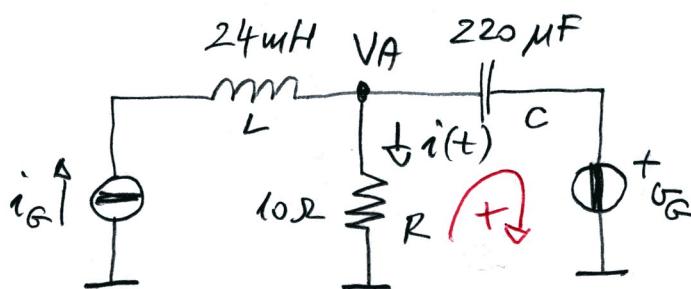 24mH VA 220 µF
L C
i(t)
iG 10Ω R + + vG